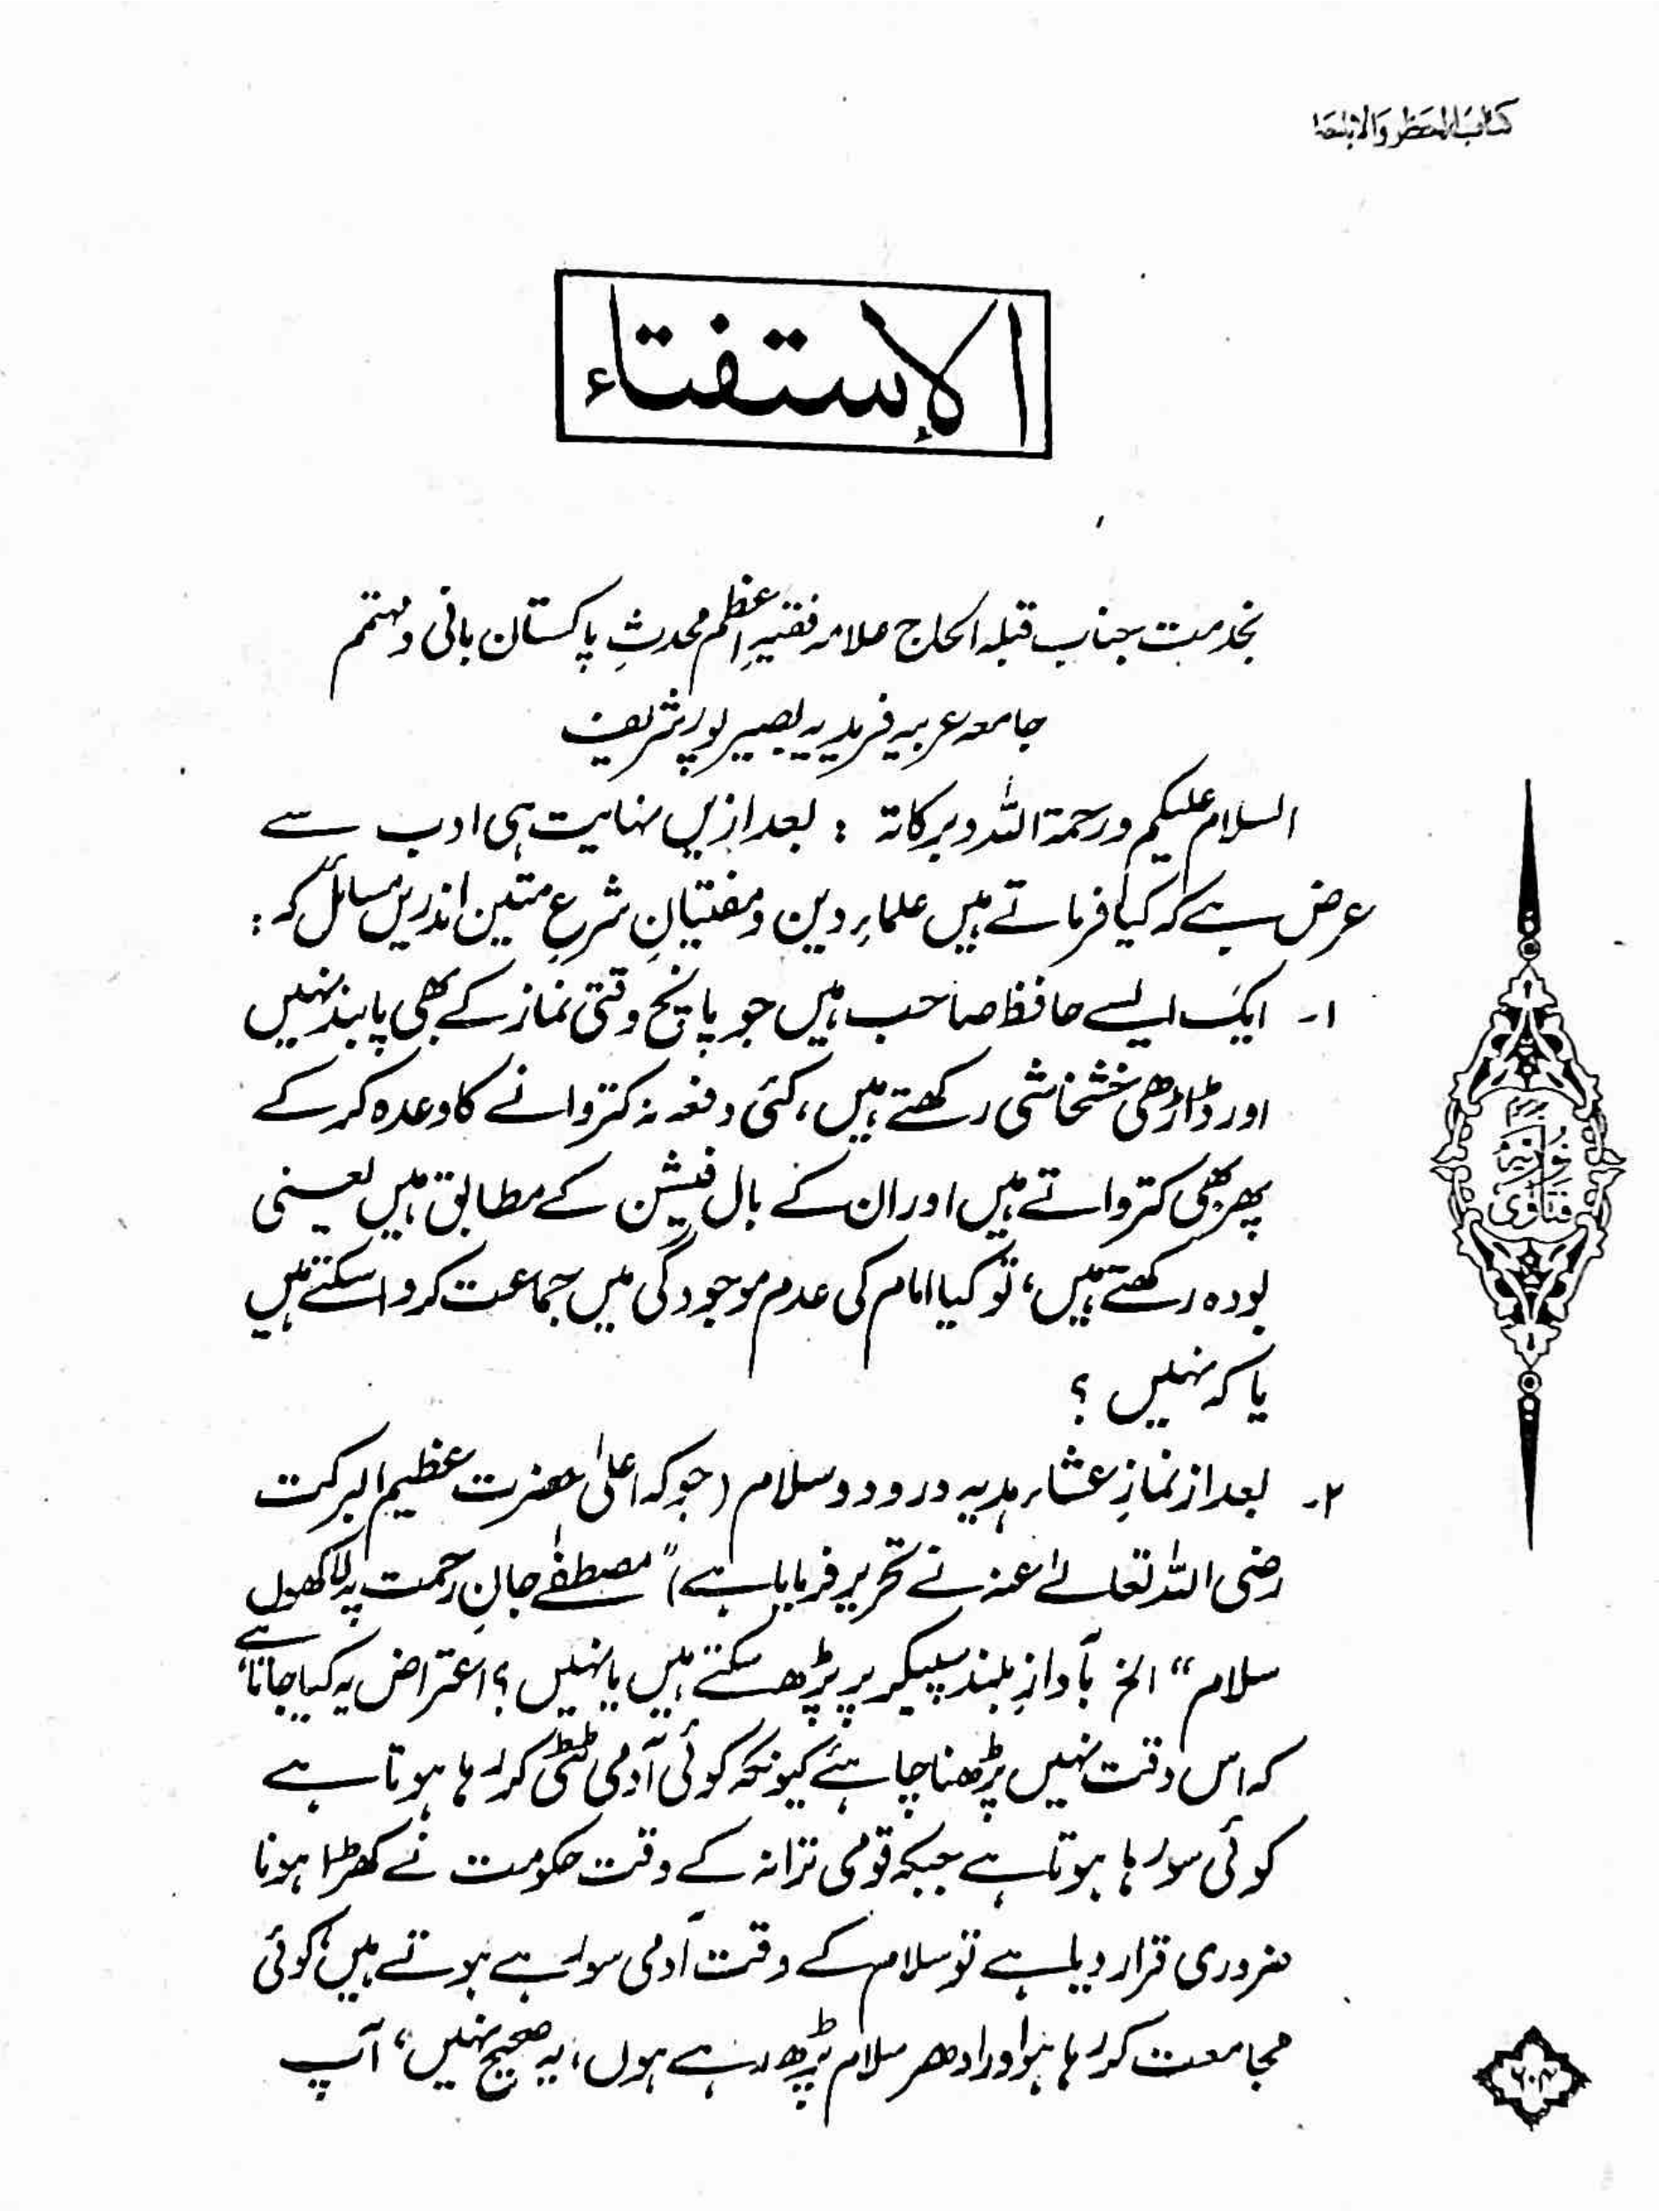 کتاب الحظر والاباحة
الإستفتاء
بخدمت جناب قبلہ الحاج علامہ فقیہِ اعظم محدثِ پاکستان بانی و مہتمم
جامعہ عربیہ فریدیہ بصیر پور شریف
السلام علیکم ورحمۃ اللہ وبرکاتہ : بعد ازیں نہایت ہی ادب سے
عرض ہے کہ کیا فرماتے ہیں علماءِ دین و مفتیانِ شرعِ متین اندریں مسائل کہ :
۱۔ ایک ایسے حافظ صاحب ہیں جو پانچ وقتی نماز کے بھی پابند نہیں
اور ڈاڑھی خشخاشی رکھتے ہیں، کئی دفعہ نہ کتروانے کا وعدہ کر کے
پھر بھی کترواتے ہیں اور ان کے بال فیشن کے مطابق ہیں یعنی
بودہ رکھتے ہیں، تو کیا امام کی عدم موجودگی میں جماعت کروا سکتے ہیں
یا کہ نہیں ؟
۲۔ بعد از نمازِ عشاء ہدیہ درود و سلام (جو کہ اعلیٰ حضرت عظیم البرکت
رضی اللہ تعالےٰ عنہ نے تحریر فرمایا ہے) ”مصطفےٰ جانِ رحمت پہ لاکھوں
سلام“ الخ بآوازِ بلند سپیکر پر پڑھ سکتے ہیں یا نہیں ؟ اعتراض یہ کیا جاتا ہے
کہ اس وقت نہیں پڑھنا چاہئے کیونکہ کوئی آدمی ٹٹی کر رہا ہوتا ہے
کوئی سو رہا ہوتا ہے جبکہ قومی ترانہ کے وقت حکومت نے کھڑا ہونا
ضروری قرار دیا ہے تو سلام کے وقت آدمی سو رہے ہوتے ہیں، کوئی
مجامعت کر رہا ہو اور ادھر سلام پڑھ رہے ہوں، یہ صحیح نہیں، آپ
نوریہ
فتاوٰی